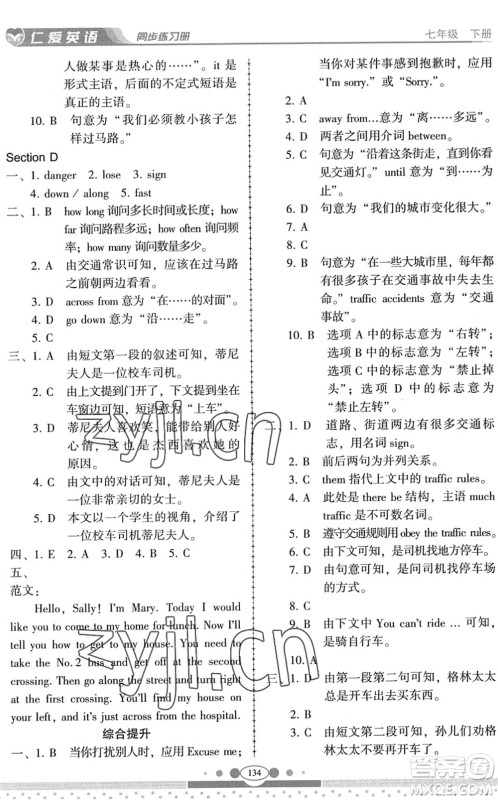 仁爱英语 同步练习册
七年级 下册
人做某事是热心的……”。it 是
形式主语，后面的动词不定式短语是
真正的主语。
10. B 句意为“我们必须教小孩子怎
样过马路。”
Section D
一、1. danger 2. lose 3. sign
4. down / along 5. fast
二、1. B how long 询问多长时间或长度；how
far 询问路程多远；how often 询问
频率；how many 询问数量多少。
2. A 由交通常识可知，应该在过马路
之前朝两边看看。
3. D across from 意为“在……的对面”。
4. D go down 意为“沿……走”。
三、1. A 由短文第一段的叙述可知，蒂尼
夫人是一位校车司机。
2. C 由上文提到门开了，下文提到在
车窗边可知，短语意为“上车”。
3. D 蒂尼夫人喜欢笑，能带给人们开
心，这也是杰西喜欢她的
原因。
4. C 由文中的对话可知，蒂尼夫人是
一位非常亲切的女士。
5. D 本文以一个学生的视角，介绍了
一位校车司机蒂尼夫人。
四、1. E 2. A 3. D 4. B 5. C
五、
范文：
Hello, Sally! I'm Mary. Today I would
like you to come to my home for lunch. Now I'll
tell you how to get to my house. You need to
take the No. 2 bus and get off at the second
crossing. Then go along the street and turn right
at the first crossing. You'll find my house on
your left, and it's just across from the hospital.
综合提升
一、1. B 当你打扰别人时，应用 Excuse me；
当你对某件事感到抱歉时，应用
“I'm sorry.” 或“Sorry.”。
2. A
3. C away from…意为“离……多远”。
4. D 两者之间用介词 between。
5. C 句意为“沿着这条街走，直到你看
见交通灯。”until 意为“到……为
止”。
6. D 句意为“我们的城市变化很大。”
7. A
8. C
9. B 句意为“在一些大城市里，每年都
有很多孩子在交通事故中失去生
命。”traffic accidents 意为“交通
事故”。
10. B 选项 A 中的标志意为“右转”；
选项 B 中的标志意为“左转”；
选项 C 中的标志意为“禁止掉
头”；选项 D 中的标志意为
“禁止左转”。
二、1. D 道路、街道两边有很多各种标
志，用名词 sign。
2. B 前后两句为并列关系。
3. C them 指代上文中的 traffic signs。
4. A 此处是 there be 结构，主语 much
为不可数名词。
5. B 遵守交通规则用 obey the traffic rules。
6. C 由下文可知，是司机找地方停车。
7. D 由句意可知，是问司机找不找得
到停车场。
8. C
9. B 由下文中 You can't ride … 可知，
是骑自行车。
10. A
三、1. D 由第一段第二句可知，格林太太
不总是出去买东西。
2. B
3. C 由短文第二段可知，孙儿们给格
林太太不带来麻烦。
134
zyji.cn
zyji.cn
答案圈